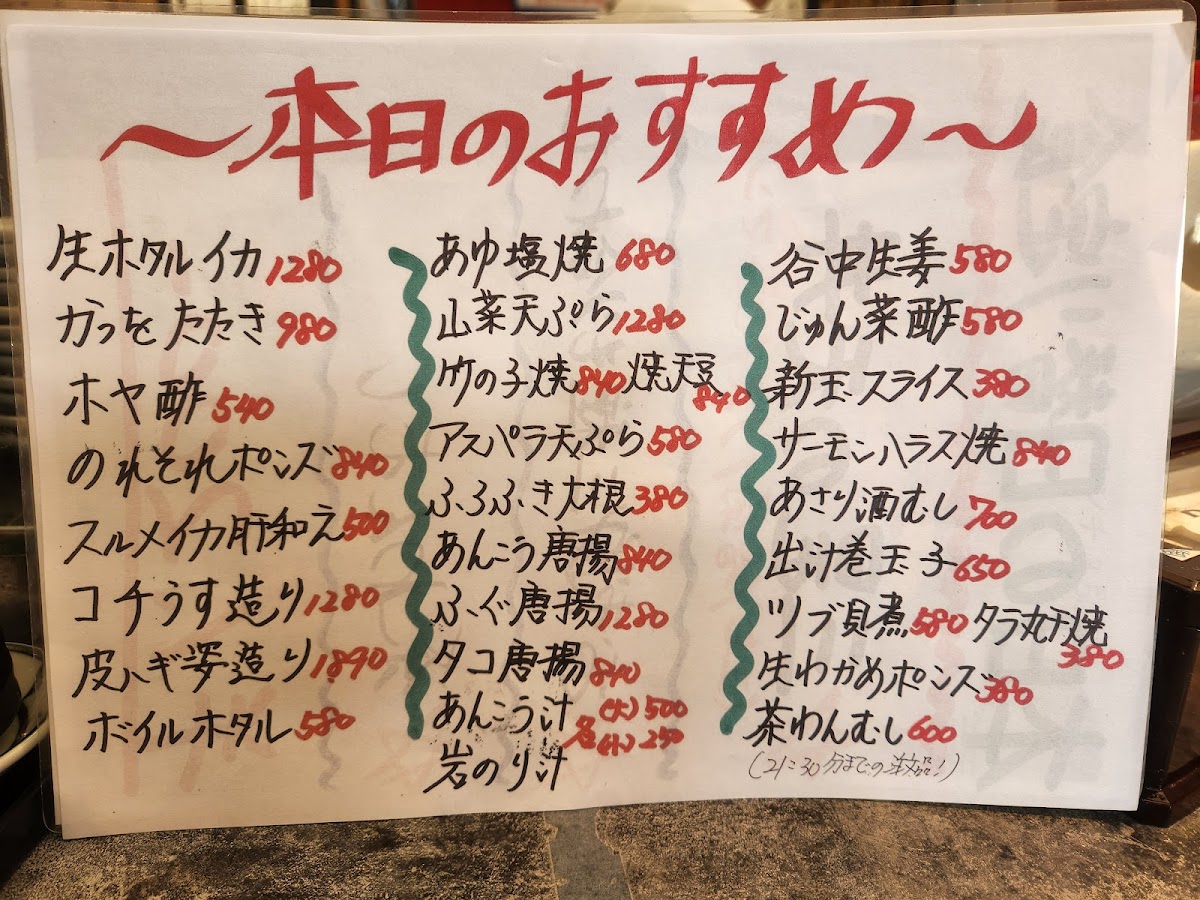 〜本日のおすすめ〜
生ホタルイカ 1280
かつをたたき 980
ホヤ酢 540
のれそれポンズ 840
スルメイカ肝和え 500
コチうす造り 1280
皮ハギ姿造り 1890
ボイルホタル 580
あゆ塩焼 680
山菜天ぷら 1280
竹の子焼 840 焼天豆 840
アスパラ天ぷら 580
ふろふき大根 380
あんこう唐揚 840
ふぐ唐揚 1280
タコ唐揚 840
あんこう汁 各 (大) 500
岩のり汁 (小) 250
谷中生姜 580
じゅん菜酢 580
新玉スライス 380
サーモンハラス焼 840
あさり酒むし 700
出汁巻玉子 650
ツブ貝煮 580 タラ丸干焼 380
生わかめポンズ 380
茶わんむし 600
(21:30分までの注文品!)